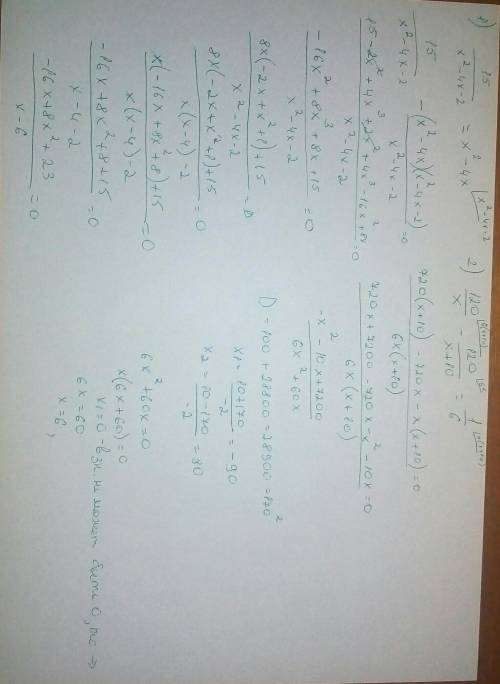 1) 15/(x²-4x-2) = x²-4x |x²-4x-2
15/(x²-4x-2) - (x²-4x)(x²-4x-2)/(x²-4x-2) = 0
(-16x²+8x³+8x+15)/(x²-4x-2) = 0
(8x(-2x+x²+1)+15)/(x²-4x-2) = 0
(8x(-2x+x²+1)+15)/(x(x-4)-2) = 0
(x(-16x+8x²+8)+15)/(x(x-4)-2) = 0
(-16x+8x²+8+15)/(x-4-2) = 0
(-16x+8x²+23)/(x-6) = 0
2) 120/x - 120/(x+10) = 1/6
(720(x+10) - 720x - x(x+10))/(6x(x+10)) = 0
(720x+7200-720x-x²-10x)/(6x(x+10)) = 0
(-x²-10x+7200)/(6x²+60x)
D = 100+28800 = 28900 = 170²
x1 = (10+170)/-2 = -90
x2 = (10-170)/-2 = 80
6x²+60x=0
x(6x+60)=0
x1=0 - в зн. не может быть 0, то →
6x=60
x=6,